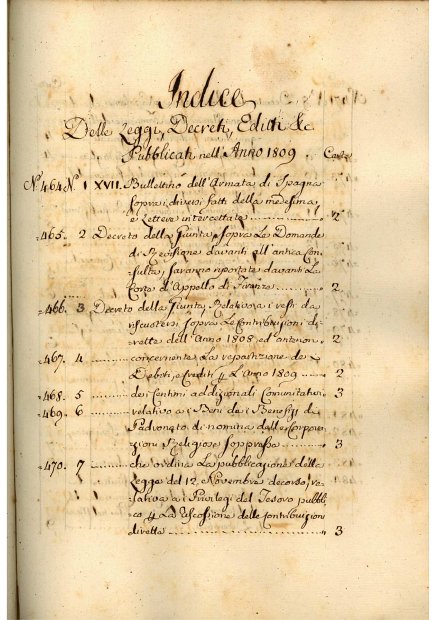 Indice
Delle Leggi, Decreti, Editti &c
Pubblicati nell'Anno 1809. Carte
N.° 464 N.° 1 XVII. Bullettino dell'Armata di Spagna
sopra i diversi fatti della medesima,
e Lettere intercettate 2
465. 2 Decreto della Giunta, sopra Le Domande
di Revisione davanti all'antica Con-
sulta, saranno riportate davanti La
Corte d'Appello di Firenze 2
466. 3 Decreto della Giunta, Relativo a i resti da
riscuotersi sopra Le Contribuzioni di-
rette dell'Anno 1808, ed'anterion. 2
467. 4 concernente La repartizione de
Debiti, e Crediti p L'Anno 1809 2
468. 5 dei Centimi addizionali Comunitativi 3
469. 6 relativo a i Beni de i Benefizj di
Padronato di nomina delle Corpora-
zioni Religiose soppresse 3
470. 7 che ordina La pubblicazione della
Legge del 12, Novembre decorso, re-
lativa a i Privilegi del Tesoro pubbli-
co p La Riscossione delle contribuzioni
dirette 3